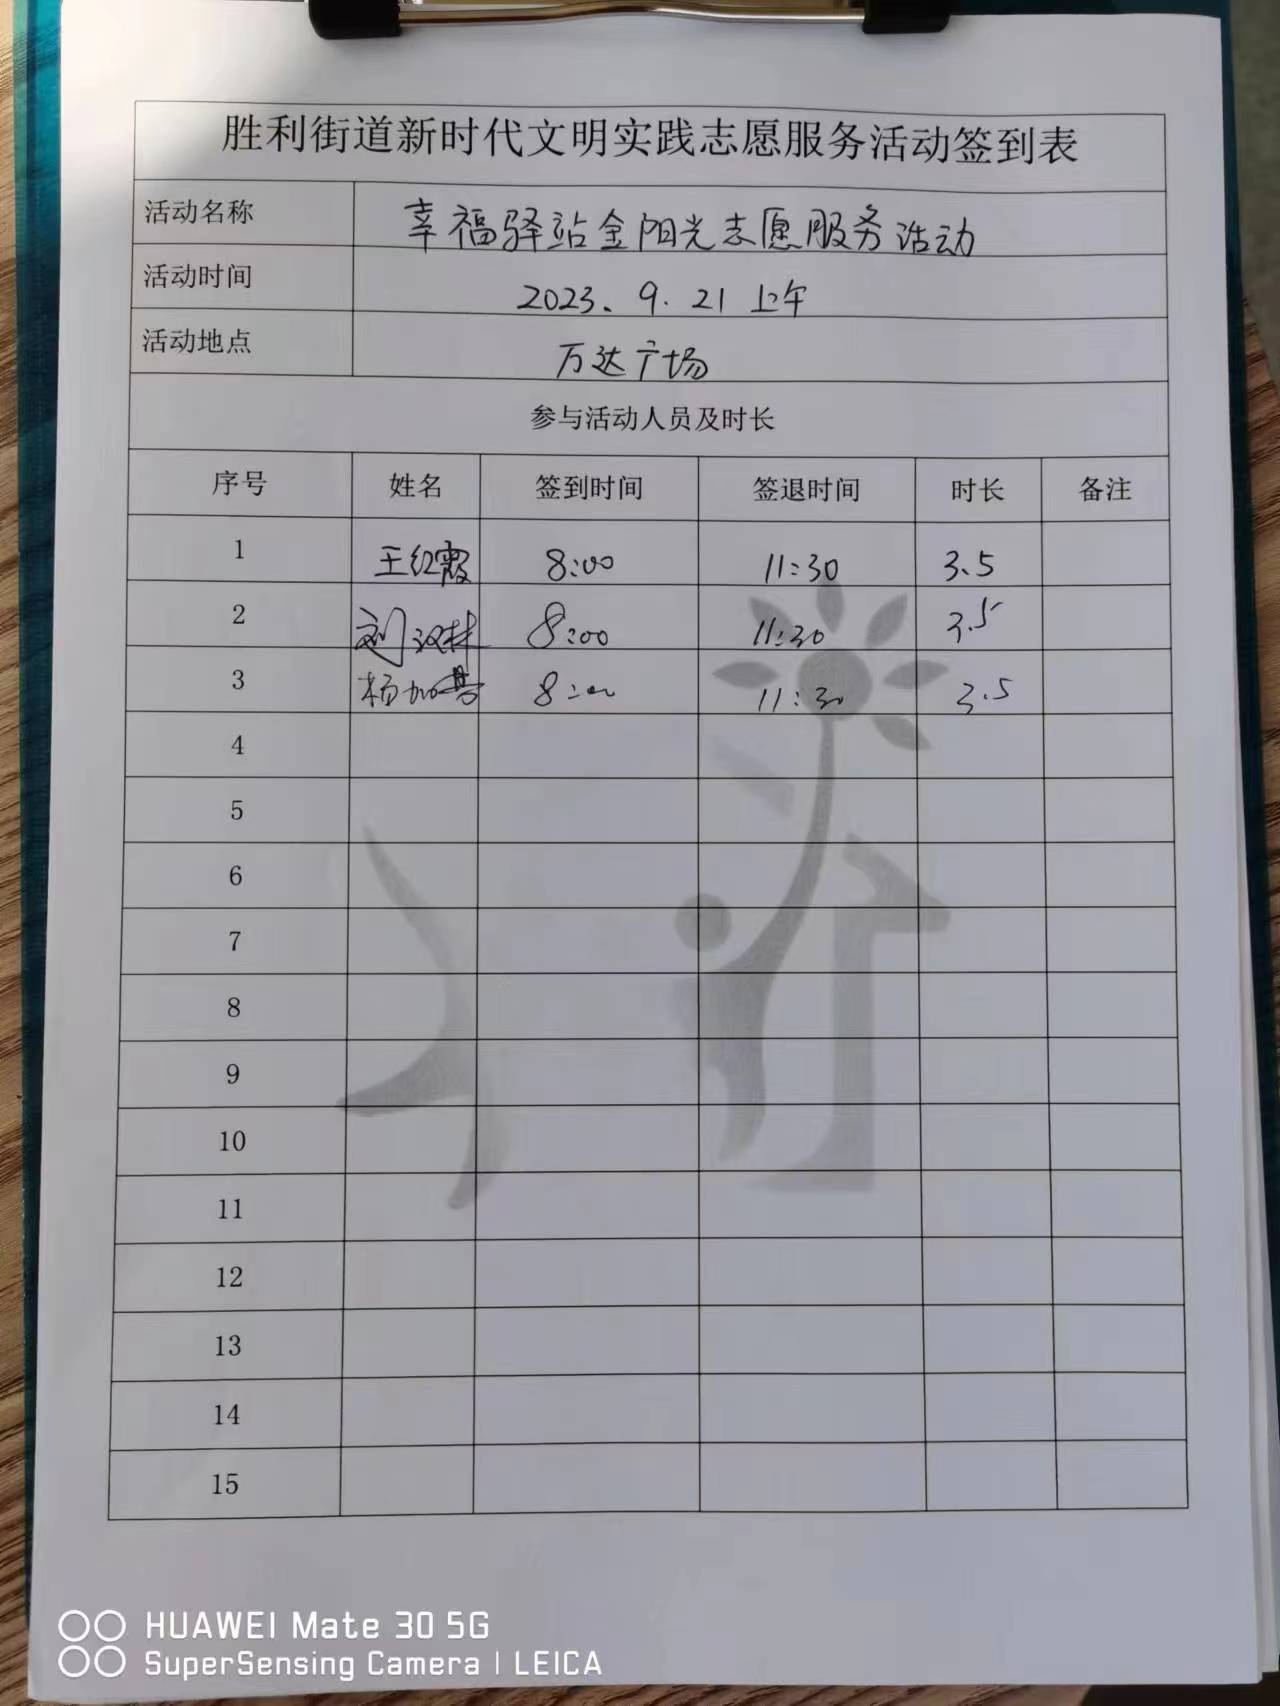 胜利街道新时代文明实践志愿服务活动签到表
活动名称 幸福驿站金阳光志愿服务活动
活动时间 2023、9.21 上午
活动地点 万达广场
参与活动人员及时长
序号 姓名 签到时间 签退时间 时长 备注
1 王红霞 8:00 11:30 3.5
2 刘汉林 8:00 11:30 3.5
3 8:00 11:30 3.5
4
5
6
7
8
9
10
11
12
13
14
15
HUAWEI Mate 30 5G
SuperSensing Camera | LEICA